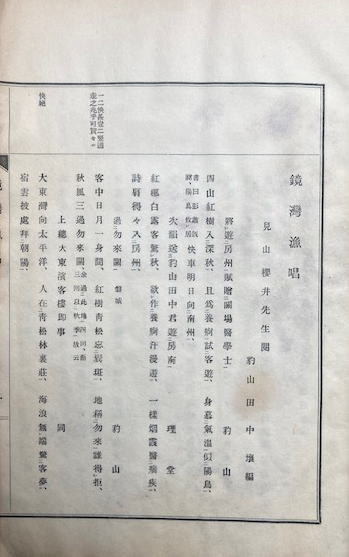 鏡灣漁唱
兒山櫻井先生閱 豹山田中壤編
將遊房州賦贈關場醫學士 豹山
四山紅樹入深秋、且爲養痾試客遊、身慕氣溫似陽鳥、
快車明日向南州、
次韻送豹山田中君遊房南 理堂
紅樹白露客驚秋、欲作養痾汗漫遊、一樣烟霞醫痼疾、
詩肩得々入房州、
過勿來關 磐城 豹山
客中日月一身閒、紅樹靑松忘鬢斑、地稱勿來誰得拒、
秋風三過勿來關、
上總大東濱客樓即事 同
大東灣向太平洋、人在靑松林裏莊、海浪無端驚客夢、
宿雲披處拜朝陽、
快絕